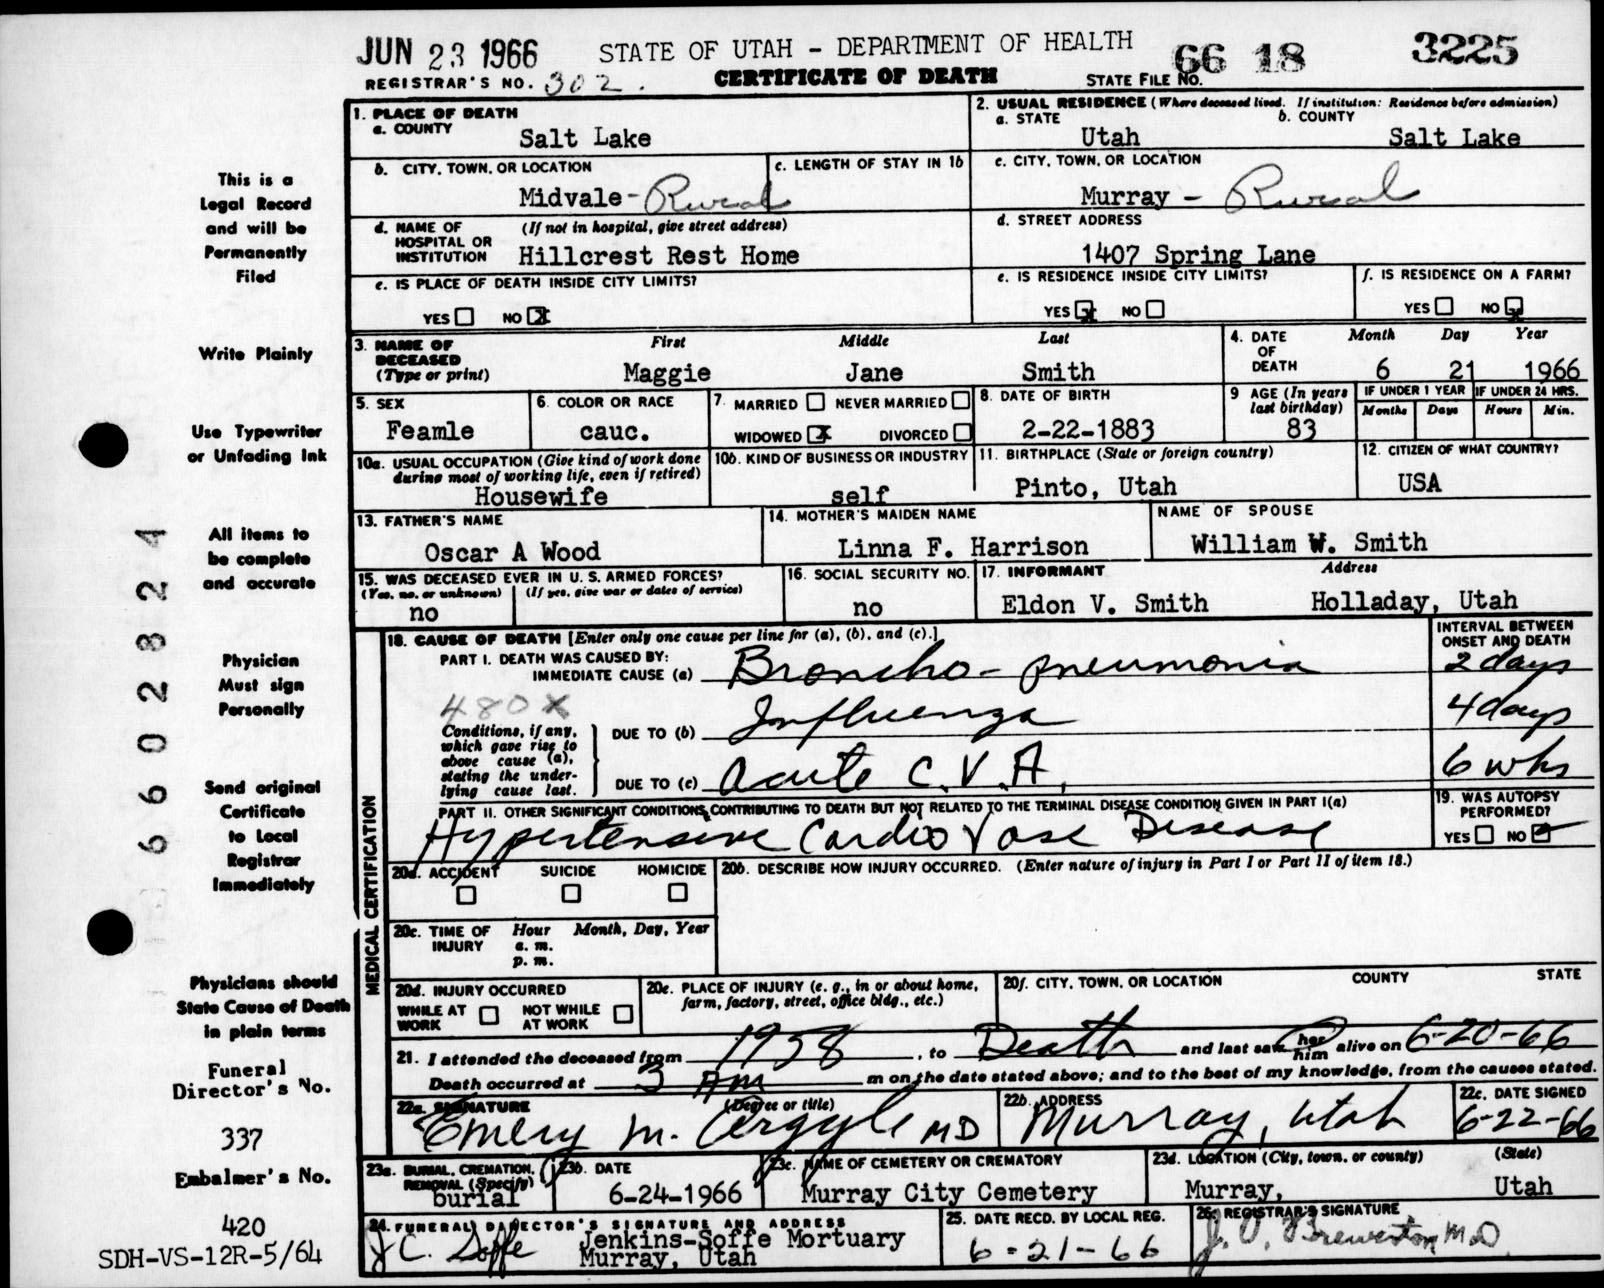 JUN 23 1966 STATE OF UTAH - DEPARTMENT OF HEALTH 66 18 3225
REGISTRAR'S NO. 302. CERTIFICATE OF DEATH STATE FILE NO.
1. PLACE OF DEATH
a. COUNTY
Salt Lake
2. USUAL RESIDENCE (Where deceased lived. If institution: Residence before admission)
a. STATE b. COUNTY
Utah Salt Lake
b. CITY, TOWN, OR LOCATION c. LENGTH OF STAY IN 1b
Midvale - Rural
c. CITY, TOWN, OR LOCATION
Murray - Rural
d. NAME OF HOSPITAL OR INSTITUTION (If not in hospital, give street address)
Hillcrest Rest Home
d. STREET ADDRESS
1407 Spring Lane
e. IS PLACE OF DEATH INSIDE CITY LIMITS?
YES NO X
e. IS RESIDENCE INSIDE CITY LIMITS?
YES X NO
f. IS RESIDENCE ON A FARM?
YES NO X
3. NAME OF DECEASED (Type or print) First Middle Last
Maggie Jane Smith
4. DATE OF DEATH Month Day Year
6 21 1966
5. SEX
Feamle
6. COLOR OR RACE
cauc.
7. MARRIED NEVER MARRIED
WIDOWED X DIVORCED
8. DATE OF BIRTH
2-22-1883
9 AGE (In years last birthday)
83
IF UNDER 1 YEAR IF UNDER 24 HRS.
Months Days Hours Min.
10a. USUAL OCCUPATION (Give kind of work done during most of working life, even if retired)
Housewife
10b. KIND OF BUSINESS OR INDUSTRY
self
11. BIRTHPLACE (State or foreign country)
Pinto, Utah
12. CITIZEN OF WHAT COUNTRY?
USA
13. FATHER'S NAME
Oscar A Wood
14. MOTHER'S MAIDEN NAME
Linna F. Harrison
NAME OF SPOUSE
William W. Smith
15. WAS DECEASED EVER IN U. S. ARMED FORCES?
(Yes, no, or unknown) (If yes, give war or dates of service)
no
16. SOCIAL SECURITY NO.
no
17. INFORMANT Address
Eldon V. Smith Holladay, Utah
MEDICAL CERTIFICATION
18. CAUSE OF DEATH [Enter only one cause per line for (a), (b), and (c).]
INTERVAL BETWEEN ONSET AND DEATH
PART I. DEATH WAS CAUSED BY:
IMMEDIATE CAUSE (a) Broncho-pneumonia 2 days
480X
Conditions, if any, which gave rise to above cause (a), stating the underlying cause last.
DUE TO (b) Influenza 4 days
DUE TO (c) Acute C.V.A. 6 wks
PART II. OTHER SIGNIFICANT CONDITIONS CONTRIBUTING TO DEATH BUT NOT RELATED TO THE TERMINAL DISEASE CONDITION GIVEN IN PART I(a)
Hypertensive Cardio Vasc Disease
19. WAS AUTOPSY PERFORMED?
YES NO
20a. ACCIDENT SUICIDE HOMICIDE
20b. DESCRIBE HOW INJURY OCCURRED. (Enter nature of injury in Part I or Part II of item 18.)
20c. TIME OF INJURY Hour Month, Day, Year
a. m.
p. m.
20d. INJURY OCCURRED
WHILE AT WORK NOT WHILE AT WORK
20e. PLACE OF INJURY (e. g., in or about home, farm, factory, street, office bldg., etc.)
20f. CITY, TOWN, OR LOCATION COUNTY STATE
21. I attended the deceased from 1958, to Death and last saw her him alive on 6-20-66
Death occurred at 3 AM m on the date stated above; and to the best of my knowledge, from the causes stated.
22a. SIGNATURE (Degree or title)
Emery M. Argyle MD
22b. ADDRESS
Murray, Utah
22c. DATE SIGNED
6-22-66
23a. BURIAL, CREMATION, REMOVAL (Specify)
burial
23b. DATE
6-24-1966
23c. NAME OF CEMETERY OR CREMATORY
Murray City Cemetery
23d. LOCATION (City, town, or county) (State)
Murray, Utah
24. FUNERAL DIRECTOR'S SIGNATURE AND ADDRESS
J C. Soffe Jenkins-Soffe Mortuary
Murray, Utah
25. DATE RECD. BY LOCAL REG.
6-21-66
26. REGISTRAR'S SIGNATURE
J. O. Brewerton, M.D.
This is a
Legal Record
and will be
Permanently
Filed
Write Plainly
Use Typewriter
or Unfading Ink
All items to
be complete
and accurate
Physician
Must sign
Personally
Send original
Certificate
to Local
Registrar
Immediately
Physicians should
State Cause of Death
in plain terms
Funeral
Director's No.
337
Embalmer's No.
420
SDH-VS-12R-5/64
66028224